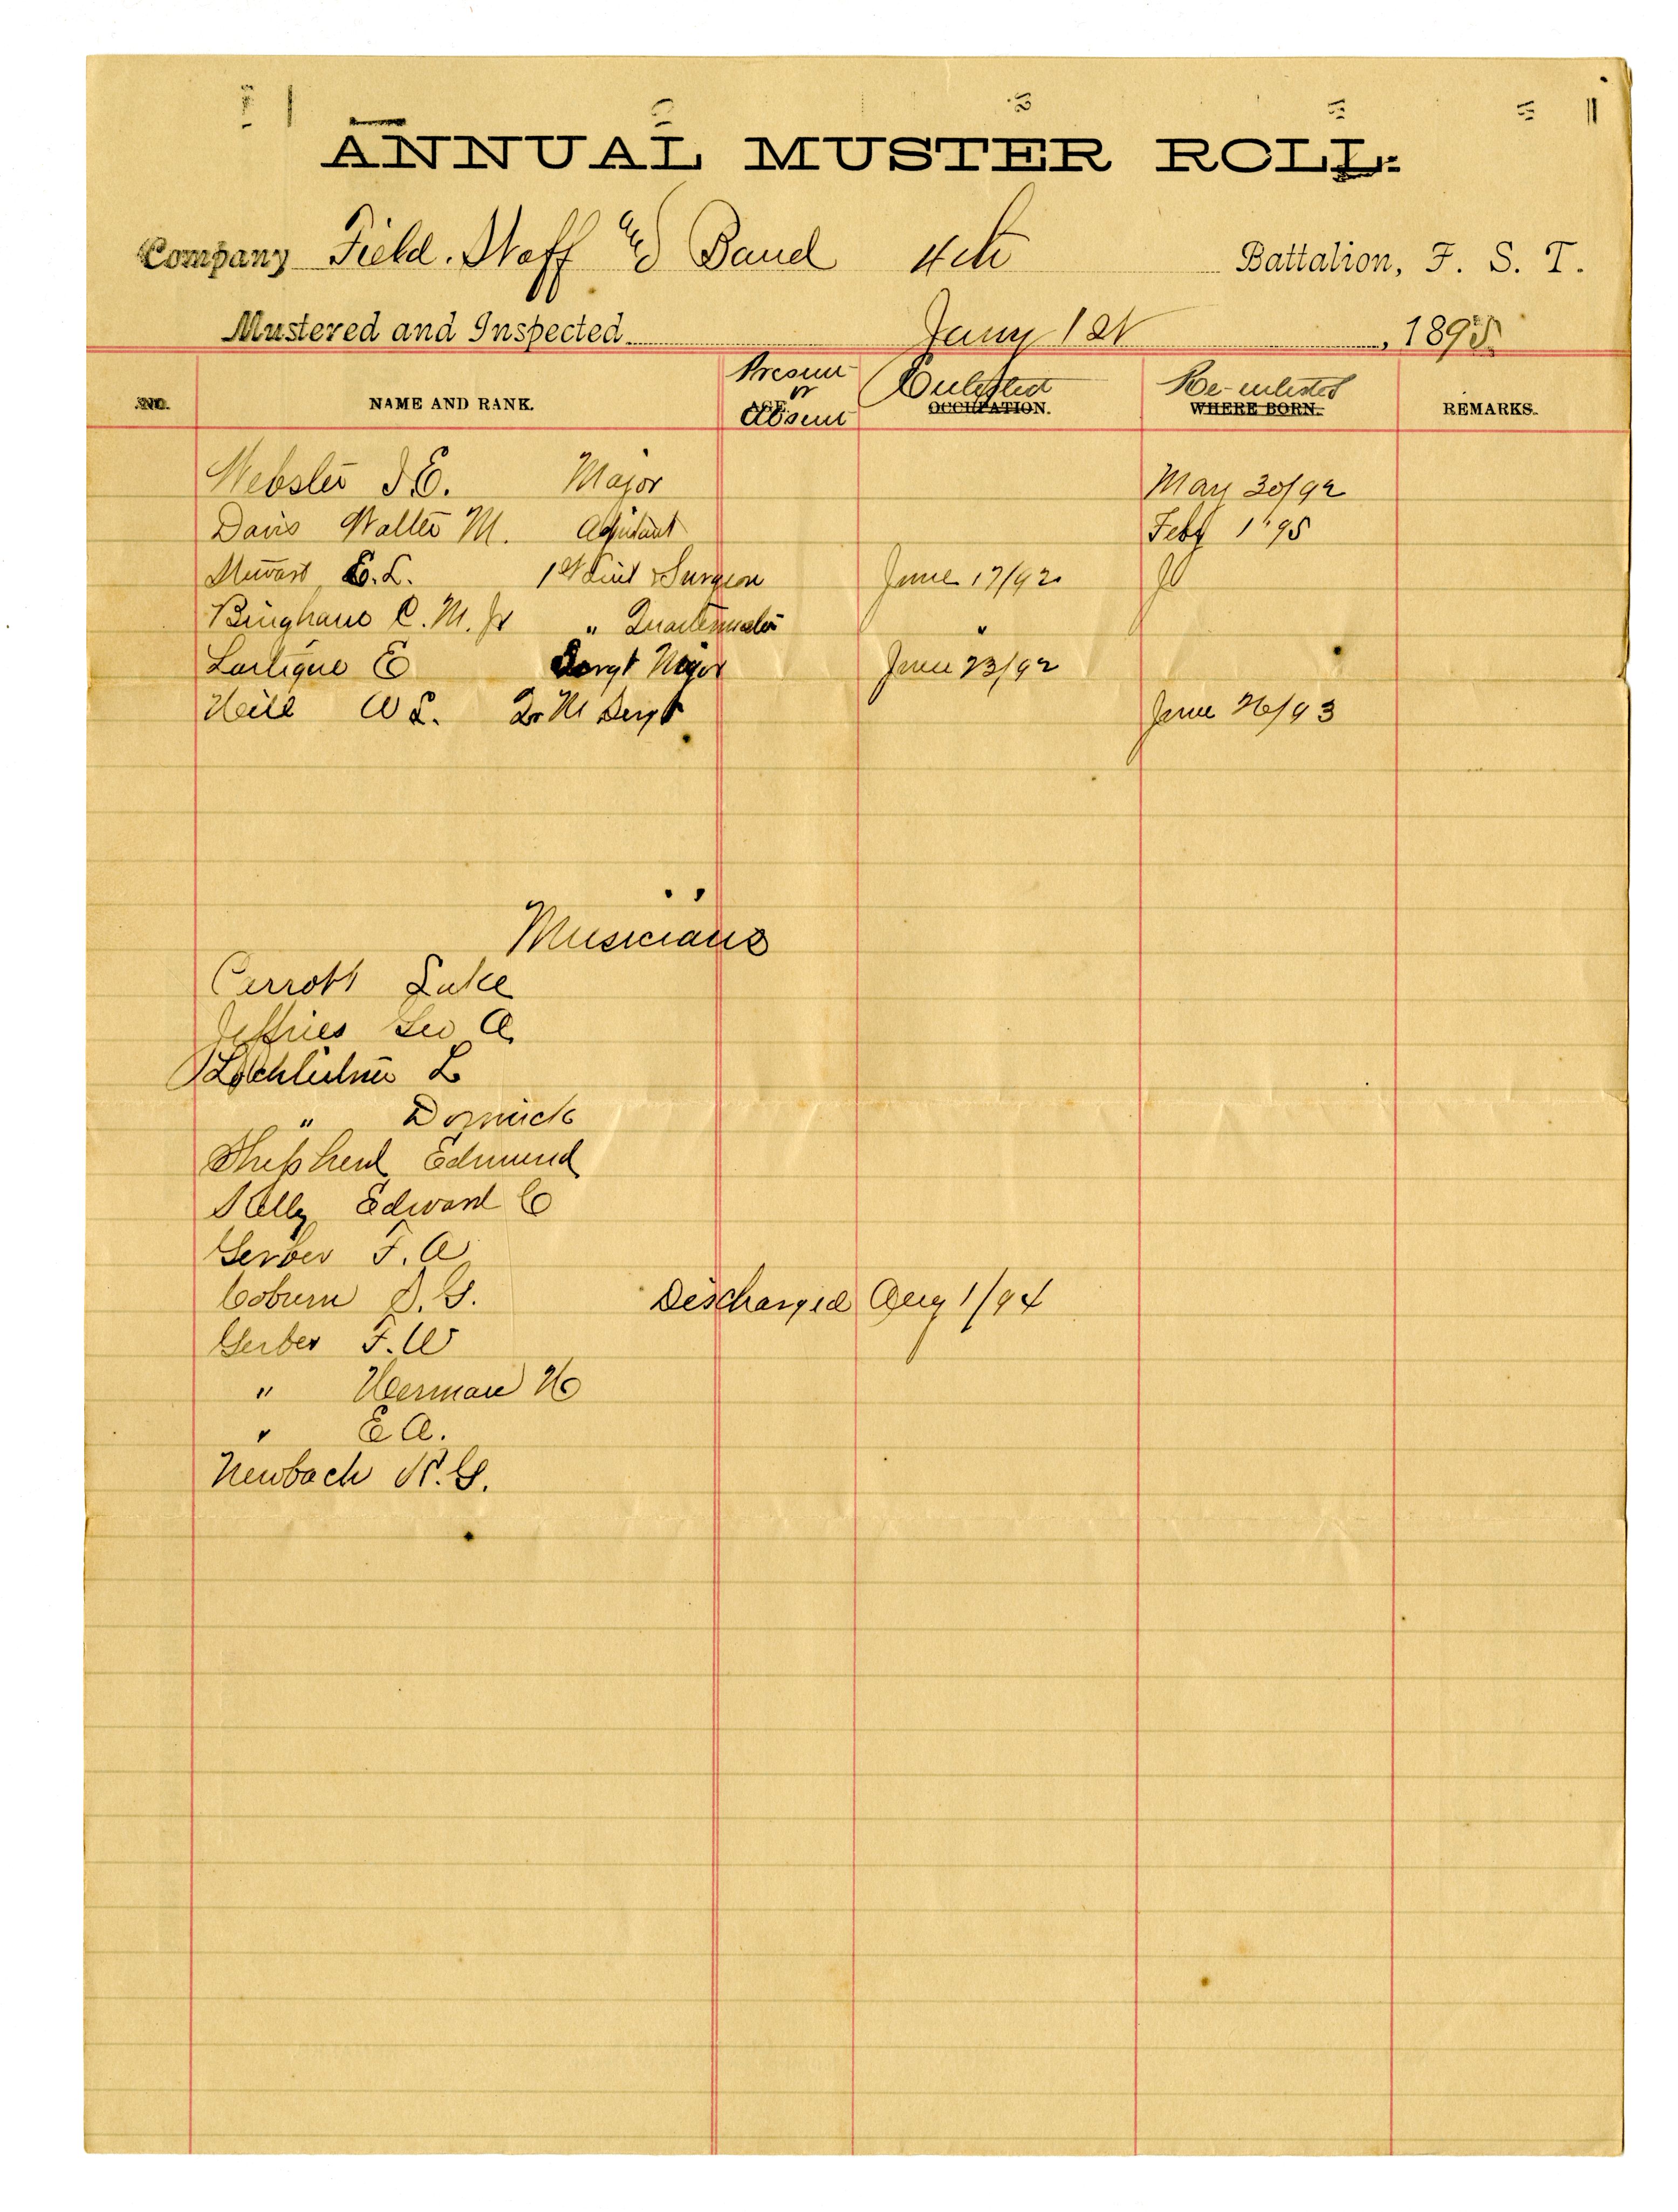 ANNUAL MUSTER ROLL.
Company Field. Staff and Band 4th Battalion, F. S. T.
Mustered and Inspected Jany 1st, 1895.
NO. NAME AND RANK. AGE. Present or Absent OCCUPATION. Enlisted WHERE BORN. Re-enlisted REMARKS.
Webster J E. Major May 30/92
Davis Walter M. Adjutant Feby 1" 95
Stewart E. L. 1st Lieut & Surgeon June 17/92
Bingham C. M. Jr " Quartermaster "
Lartigue E Sergt Major June 23/92
Hill W L. Qr M Sergt June 26/93
Musicians
Carroll Luke
Jeffries Geo A.
L
" Dominick
Shepherd Edmund
Kelly Edward C
Gerber F. A
Coburn S. G. Discharged Aug 1/94
Gerber F. W
" Herman H
" E A.
Newbach N. G.